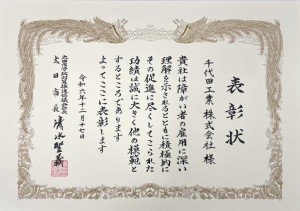 表彰状
千代田工業 株式会社 様
貴社は障がい者の雇用に深い
理解を示されるとともに積極的に
その促進に尽くしてこられた
功績は誠に大きく他の模範と
するところであります
よってここに表彰します
令和六年十二月十七日
太田市長 清水聖義